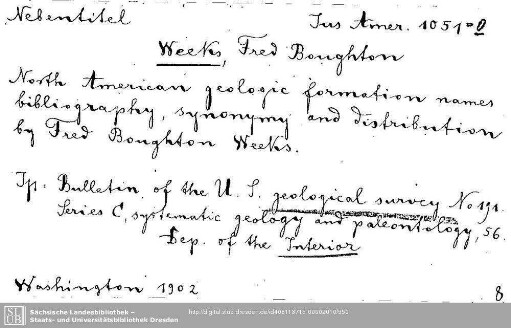 Nebentitel Jus Amer. 1051=0
Weeks, Fred Boughton
North American geologic formation names
bibliography, synonymy and distribution
by Fred Boughton Weeks.
Tp: Bulletin of the U. S. geological survey No 191.
Series C, systematic geology and paleontology, 56.
Dep. of the Interior
Washington 1902 8
SLUB
Sächsische Landesbibliothek –
Staats- und Universitätsbibliothek Dresden